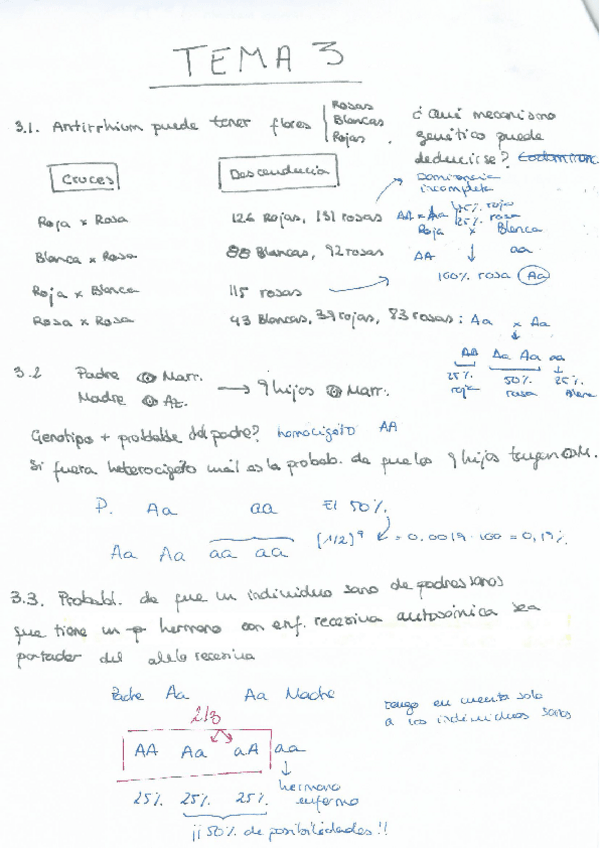 TEMA 3
3.1. Antirrhium puede tener flores Rosas Blancas Rojas. ¿Qué mecanismo
genético puede
deducirse? Codominanc.
Cruces Descendencia Dominancia
incompleta
Roja x Rosa 126 Rojas, 131 rosas AA x Aa 25% roja
25% rosa
Roja x Blanca
Blanca x Rosa 88 Blancas, 92 rosas AA aa
100% rosa Aa
Roja x Blanca 115 rosas
Rosa x Rosa 43 Blancas, 39 rojas, 83 rosas: Aa x Aa
AA Aa Aa aa
25% 50% 25%
roja rosa Blanca
3.2 Padre Marr.
Madre Az. → 9 hijos Marr.
Genotipo + probable del padre? homocigoto AA
Si fuera heterocigoto cuál es la probab. de que los 9 hijos tengan M.
P. Aa aa El 50%
Aa Aa aa aa (1/2)⁹ = 0.0019 · 100 = 0,19%
3.3. Probabl. de que un individuo sano de padres sanos
que tiene un hermano con enf. recesiva autosómica sea
portador del alelo recesivo
Padre Aa Aa Madre
tengo en cuenta solo
a los individuos sanos
2/3
AA Aa aA aa
hermano
enfermo
25% 25% 25%
¡¡50% de posibilidades!!